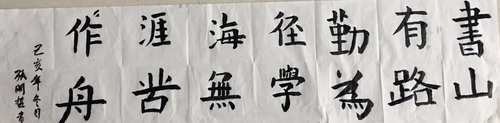 書山
有路
勤為
径學
海無
涯苦
作舟
己亥年冬月